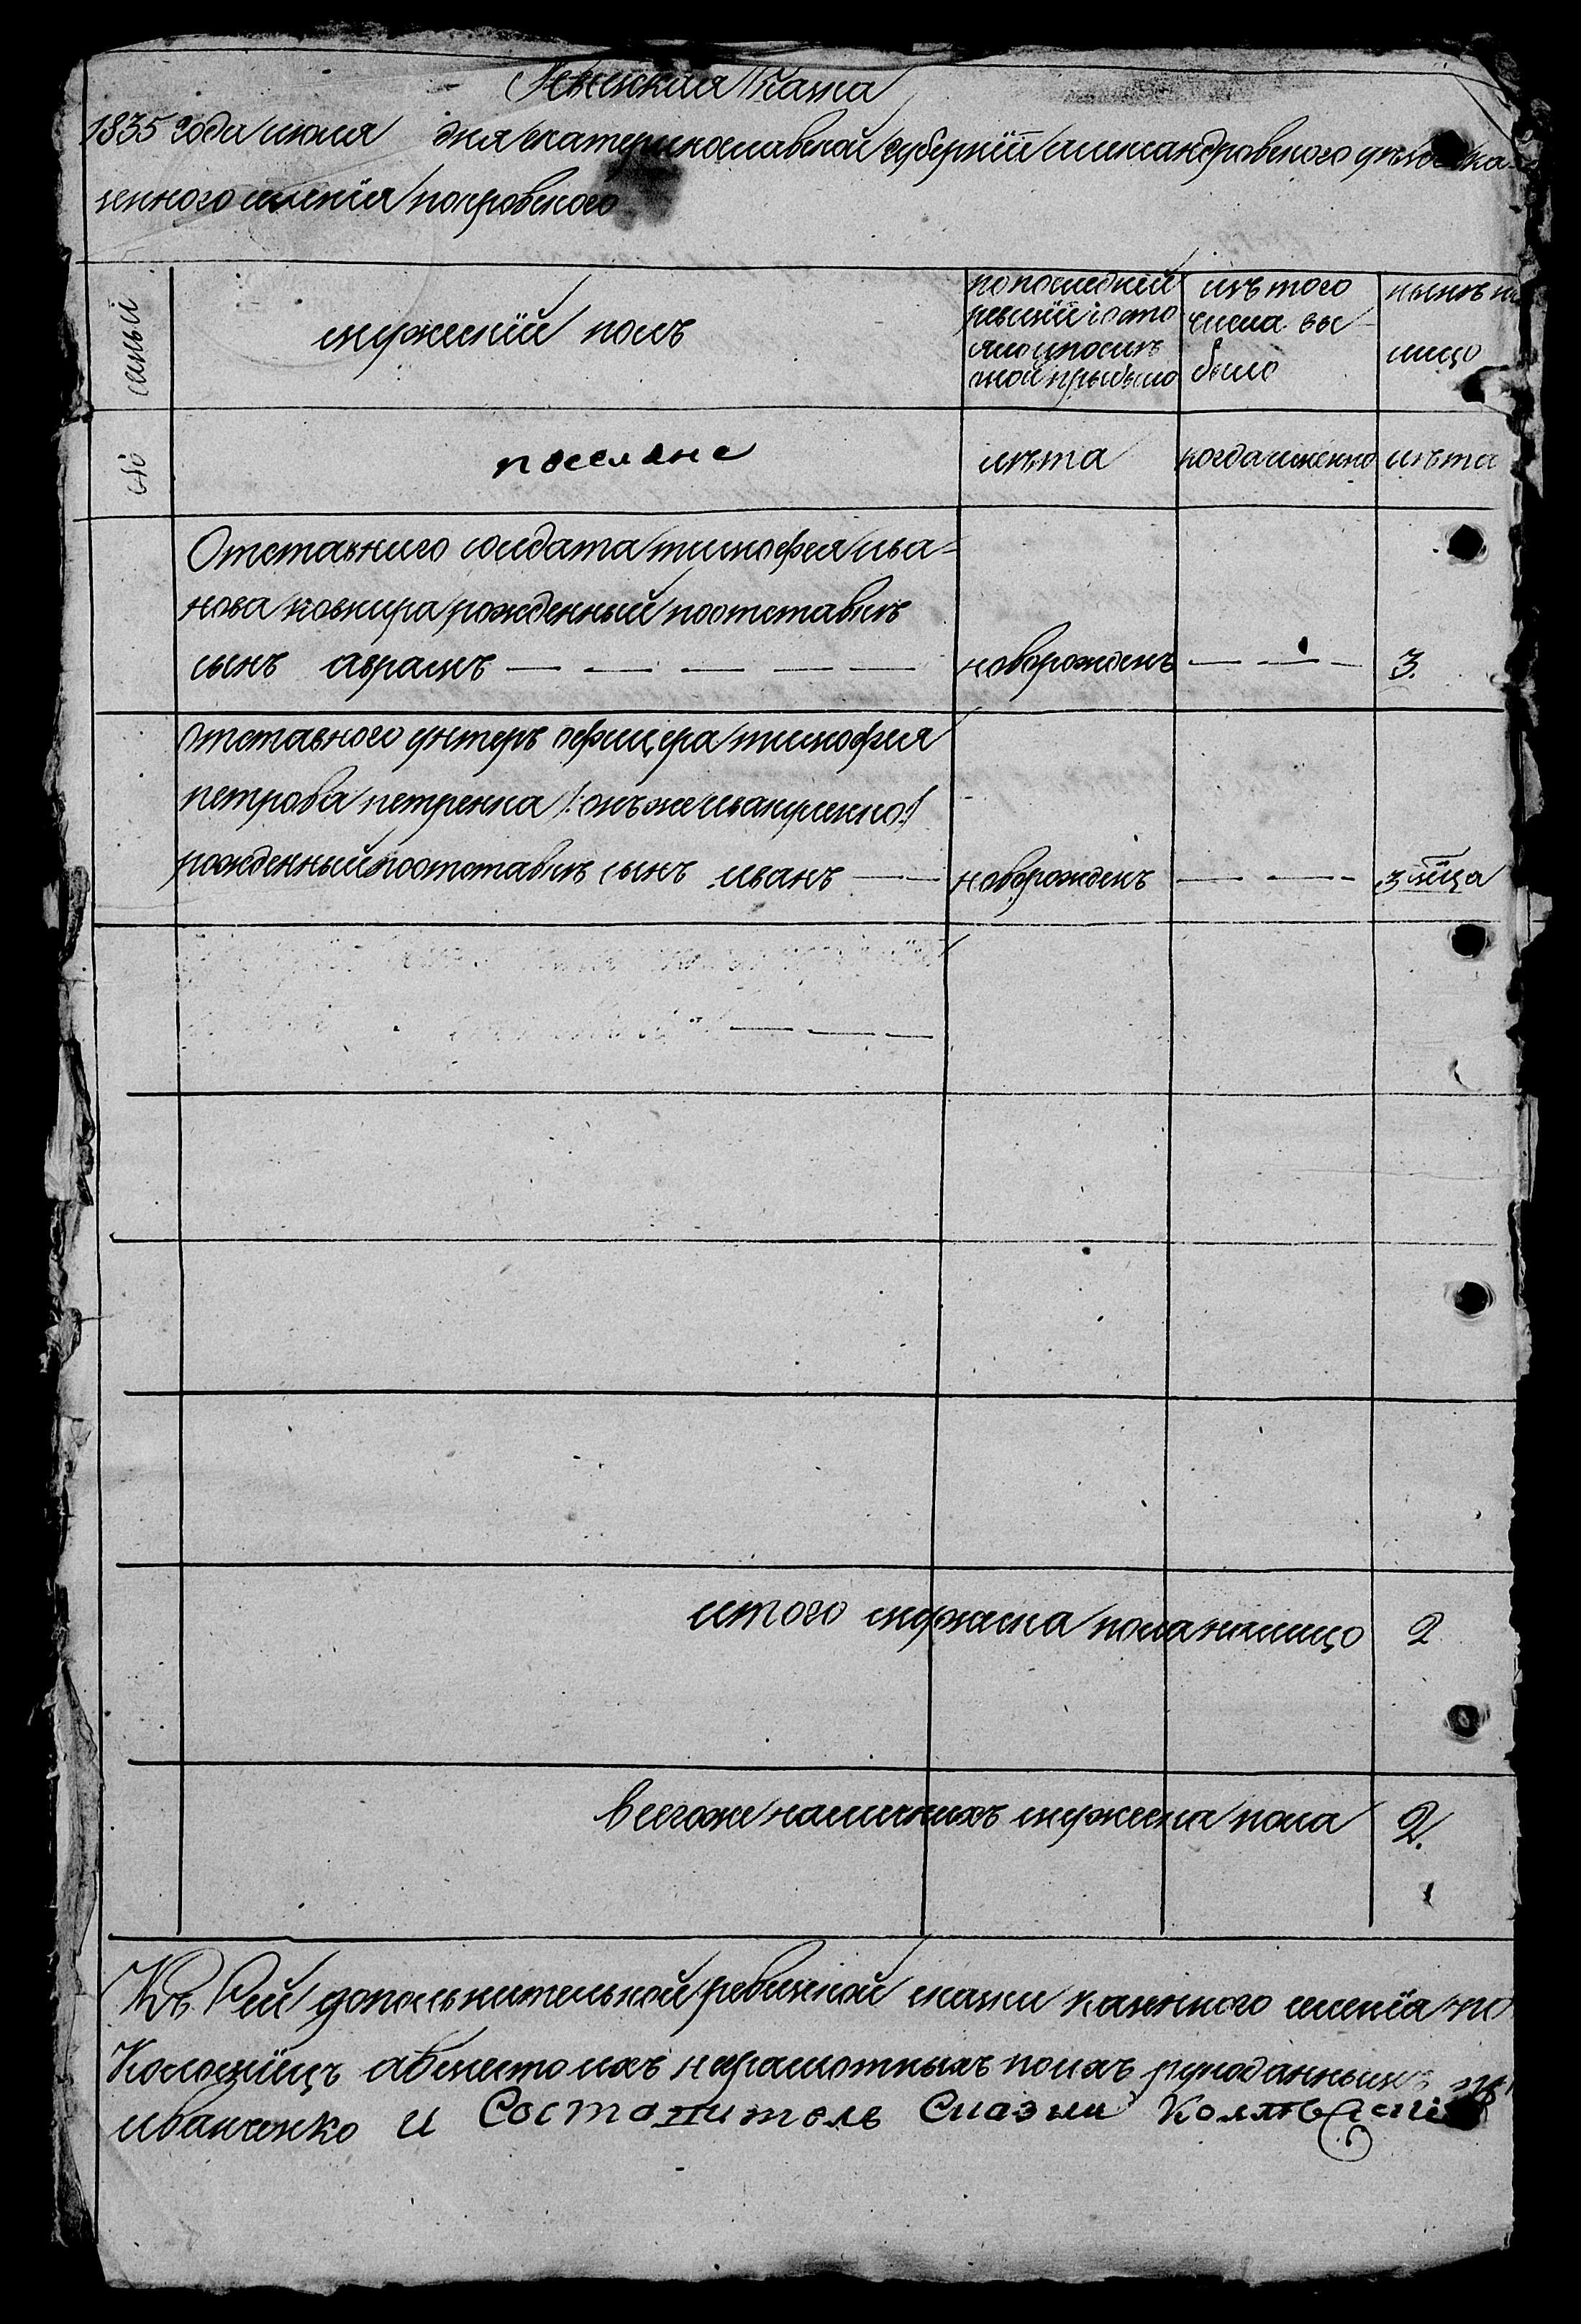 1835 года июля дня екатеринославской губернїи александровского уезда ка-
зенного имѣнїя покровского
№ семьи
мужескїй полъ
по последней
ревизїи состо
яло и после
оной прибыло
изъ того
числа вы-
было
нынѣ на
лицо
поселяне
лѣта
когда именно
лѣта
Отставного солдата тимофея ива-
нова рожденный поотставкѣ
сынъ аврамъ — — — — —
новорожденъ
— — —
3.
отставного унтеръ офицера тимофея
петрова петренка /: онъже иванченко :/
рожденный поотставкѣ сынъ иванъ — —
новорожденъ
— — —
3 мѣца
— — —
итого мужеска пола налицо
2
всегоже наличныхъ мужеска пола
2.
Къ Сей дополнительной ревизкой сказки казенного именїя по
неграмотныхъ
иванченко и Составитель Сказки